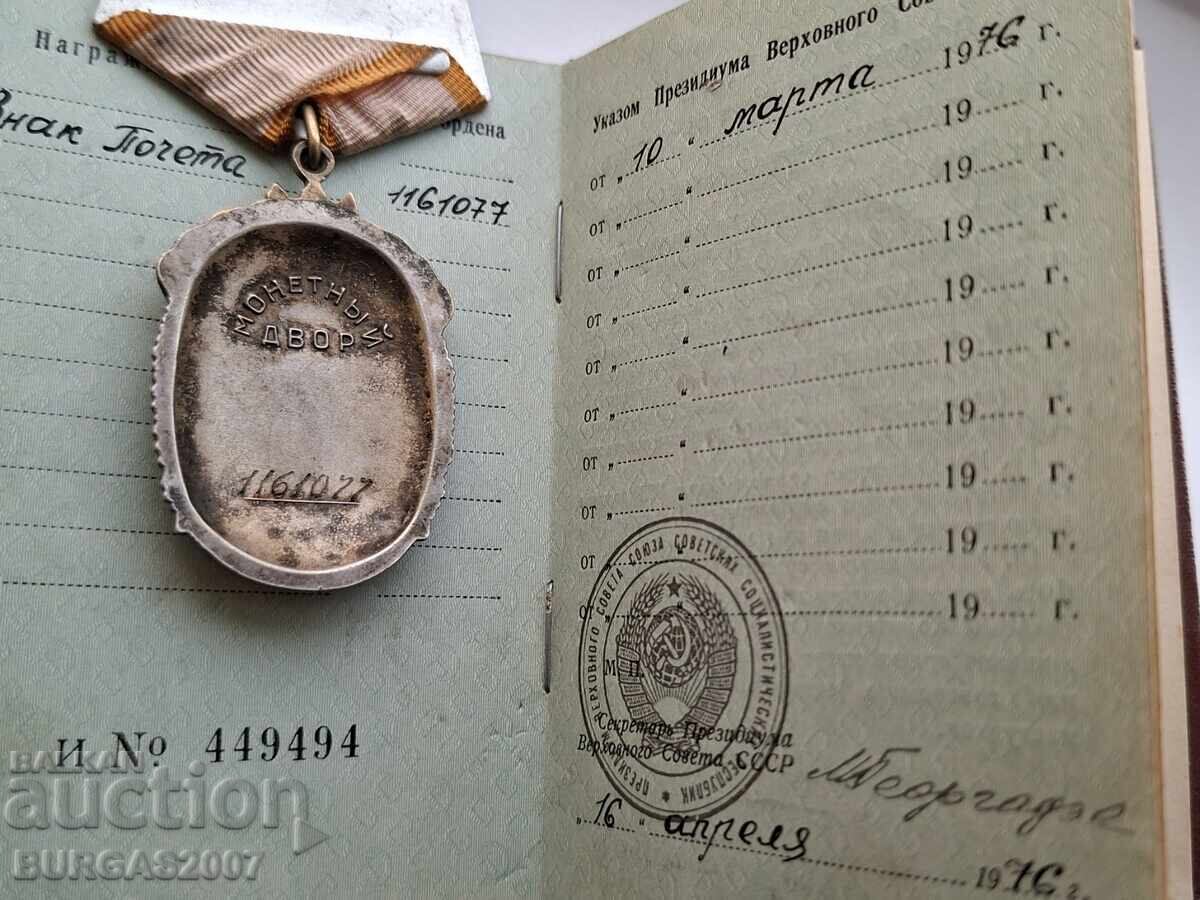 ордена
Знак Почета
1161077
МОНЕТНЫЙ
ДВОР
1161077
И № 449494
Указом Президиума Верховного
от „ 10 “ марта 1976 г.
от „ “ 19 г.
от „ “ 19 г.
от „ “ 19 г.
от „ “ 19 г.
от „ “ 19 г.
от „ “ 19 г.
от „ “ 19 г.
от „ “ 19 г.
от „ “ 19 г.
ПРЕЗИДИУМ ВЕРХОВНОГО СОВЕТА СОЮЗА СОВЕТСКИХ СОЦИАЛИСТИЧЕСКИХ РЕСПУБЛИК
М. П.
Секретарь Президиума
Верховного Совета СССР
М Георгадзе
„ 16 “ апреля 1976 г.
BALKAN
auction
BURGAS2007